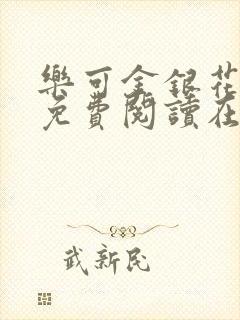 樂可金銀花
免費閱讀在
武新民